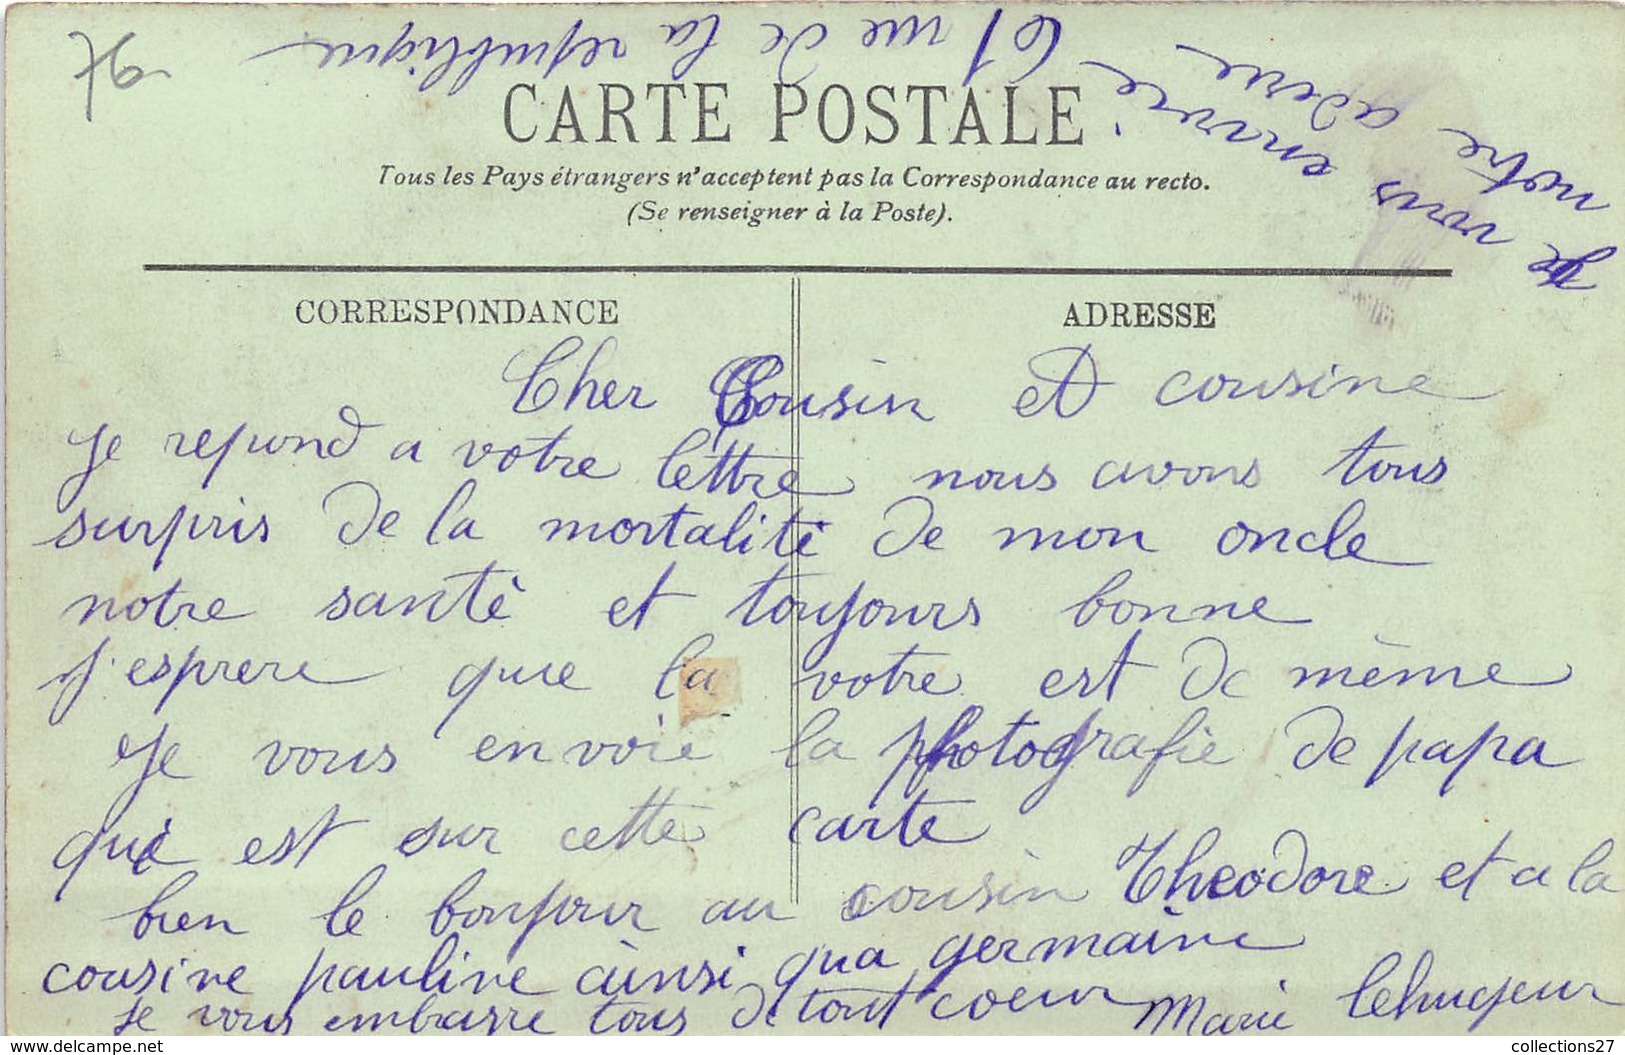 76
Je vous envoie
notre adresse
61 rue de la republique
CARTE POSTALE
Tous les Pays étrangers n'acceptent pas la Correspondance au recto.
(Se renseigner à la Poste).
CORRESPONDANCE
ADRESSE
Cher Cousin et cousine
Je repond a votre lettre nous avons tous
surpris de la mortalité de mon oncle
notre santé et toujours bonne
j'esprere que la votre est de même
Je vous envoie la photografie de papa
qui est sur cette carte
bien le bonjour au cousin Theodore et a la
cousine pauline ainsi qua germaine
Je vous embrasse tous de tout coeur Marie lehugeur
collections27
www.delcampe.net